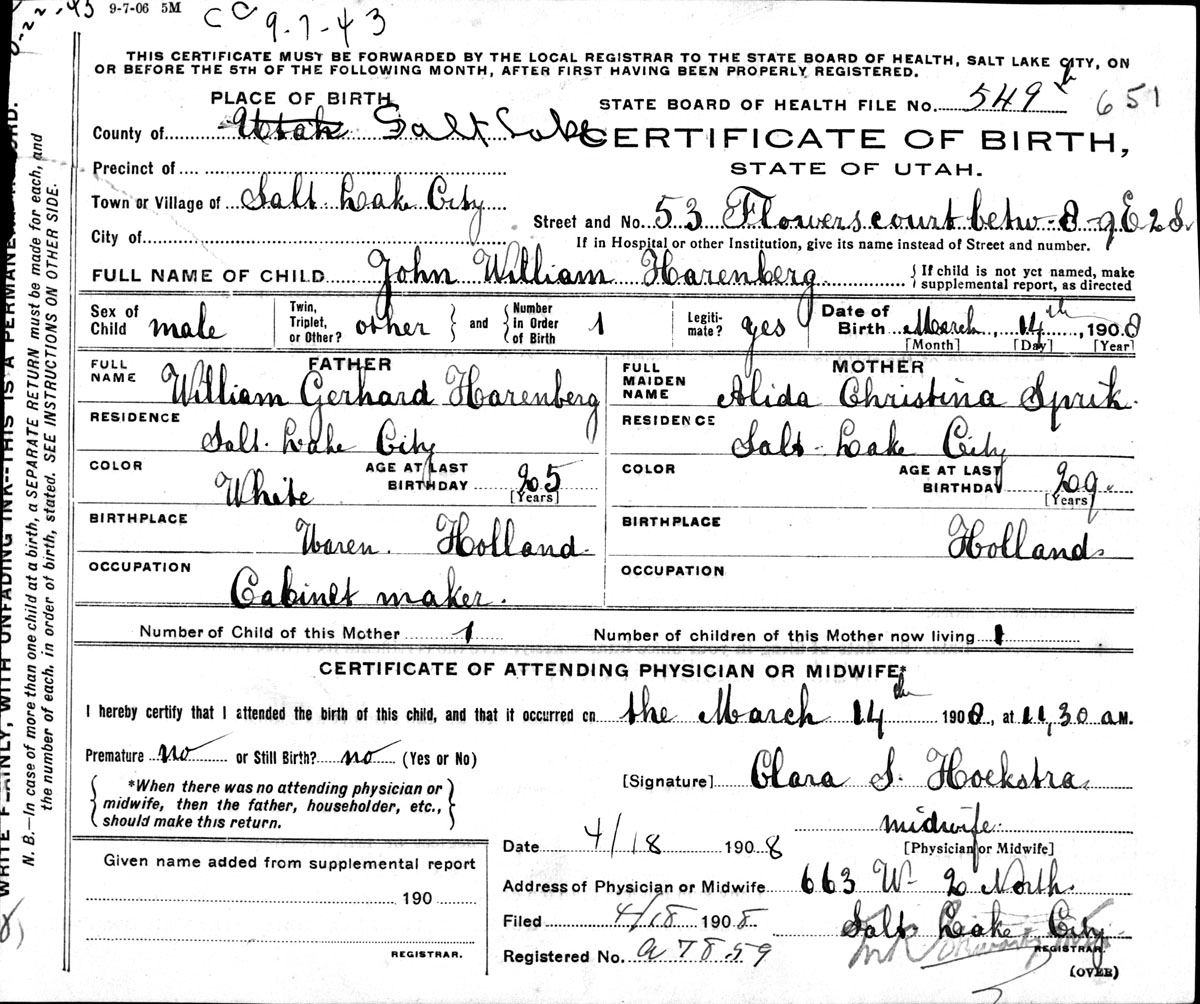 8-22-43 9-7-06 5M CC 9-7-43
THIS CERTIFICATE MUST BE FORWARDED BY THE LOCAL REGISTRAR TO THE STATE BOARD OF HEALTH, SALT LAKE CITY, ON
OR BEFORE THE 5TH OF THE FOLLOWING MONTH, AFTER FIRST HAVING BEEN PROPERLY REGISTERED.
PLACE OF BIRTH
STATE BOARD OF HEALTH FILE NO. 549 651
County of Utah Salt Lake
CERTIFICATE OF BIRTH,
STATE OF UTAH.
Precinct of
Town or Village of Salt Lake City
Street and No. 53 Flowers court betw. 8-9 E 2 S.
City of
If in Hospital or other Institution, give its name instead of Street and number.
FULL NAME OF CHILD John William Harenberg { If child is not yet named, make supplemental report, as directed
Sex of Child male Twin, Triplet, or Other? other } and { Number in Order of Birth 1 Legiti-mate? yes Date of Birth March, 14th, 1908
[Month] [Day] [Year]
FATHER
FULL NAME William Gerhard Harenberg
RESIDENCE
Salt Lake City
COLOR White AGE AT LAST BIRTHDAY 25 [Years]
BIRTHPLACE
Waren. Holland
OCCUPATION
Cabinet maker.
MOTHER
FULL MAIDEN NAME Alida Christina Sprik.
RESIDENCE
Salt Lake City
COLOR AGE AT LAST BIRTHDAY 29. [Years]
BIRTHPLACE
Holland
OCCUPATION
Number of Child of this Mother 1 Number of children of this Mother now living 1
CERTIFICATE OF ATTENDING PHYSICIAN OR MIDWIFE*
I hereby certify that I attended the birth of this child, and that it occurred on the March 14th 1908, at 11,30 a M.
Premature no or Still Birth? no (Yes or No)
{ *When there was no attending physician or
midwife, then the father, householder, etc.,
should make this return. }
[Signature] Clara S. Hoekstra
midwife.
[Physician or Midwife]
Date 4/18 1908
Address of Physician or Midwife 663 W- 2 North
Salt Lake City
Filed 4/18 1908
REGISTRAR.
Registered No. a7859
(OVER)
Given name added from supplemental report
190
REGISTRAR.
WRITE PLAINLY, WITH UNFADING INK--THIS IS A PERMANENT RECORD.
N. B.—In case of more than one child at a birth, a SEPARATE RETURN must be made for each, and
the number of each, in order of birth, stated. SEE INSTRUCTIONS ON OTHER SIDE.